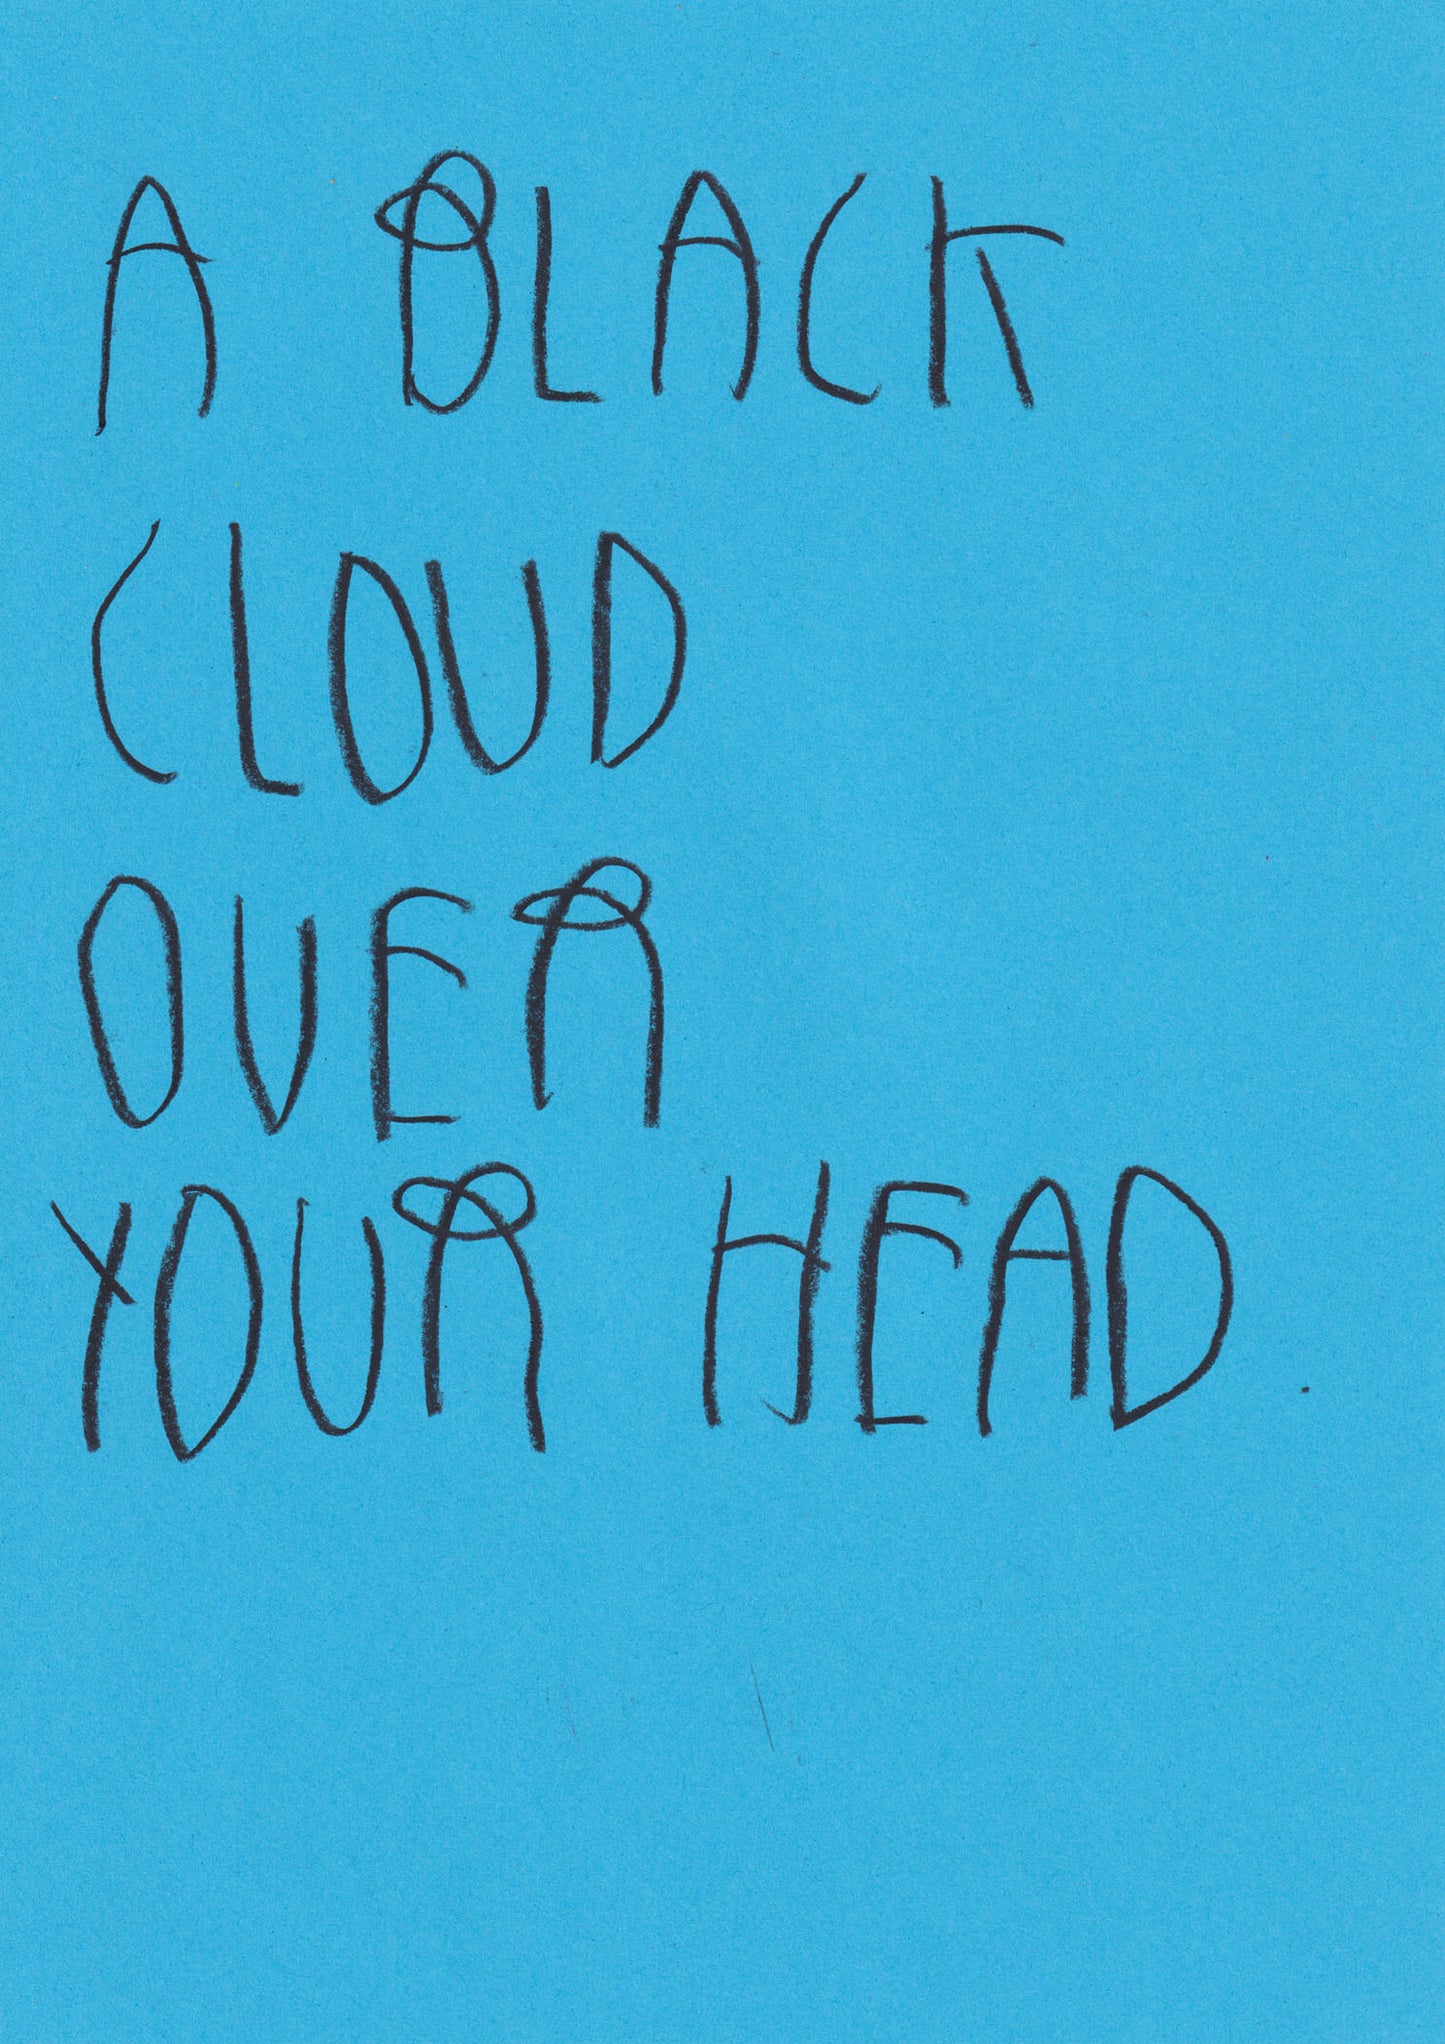 A BLACK
CLOUD
OVER
YOUR HEAD.